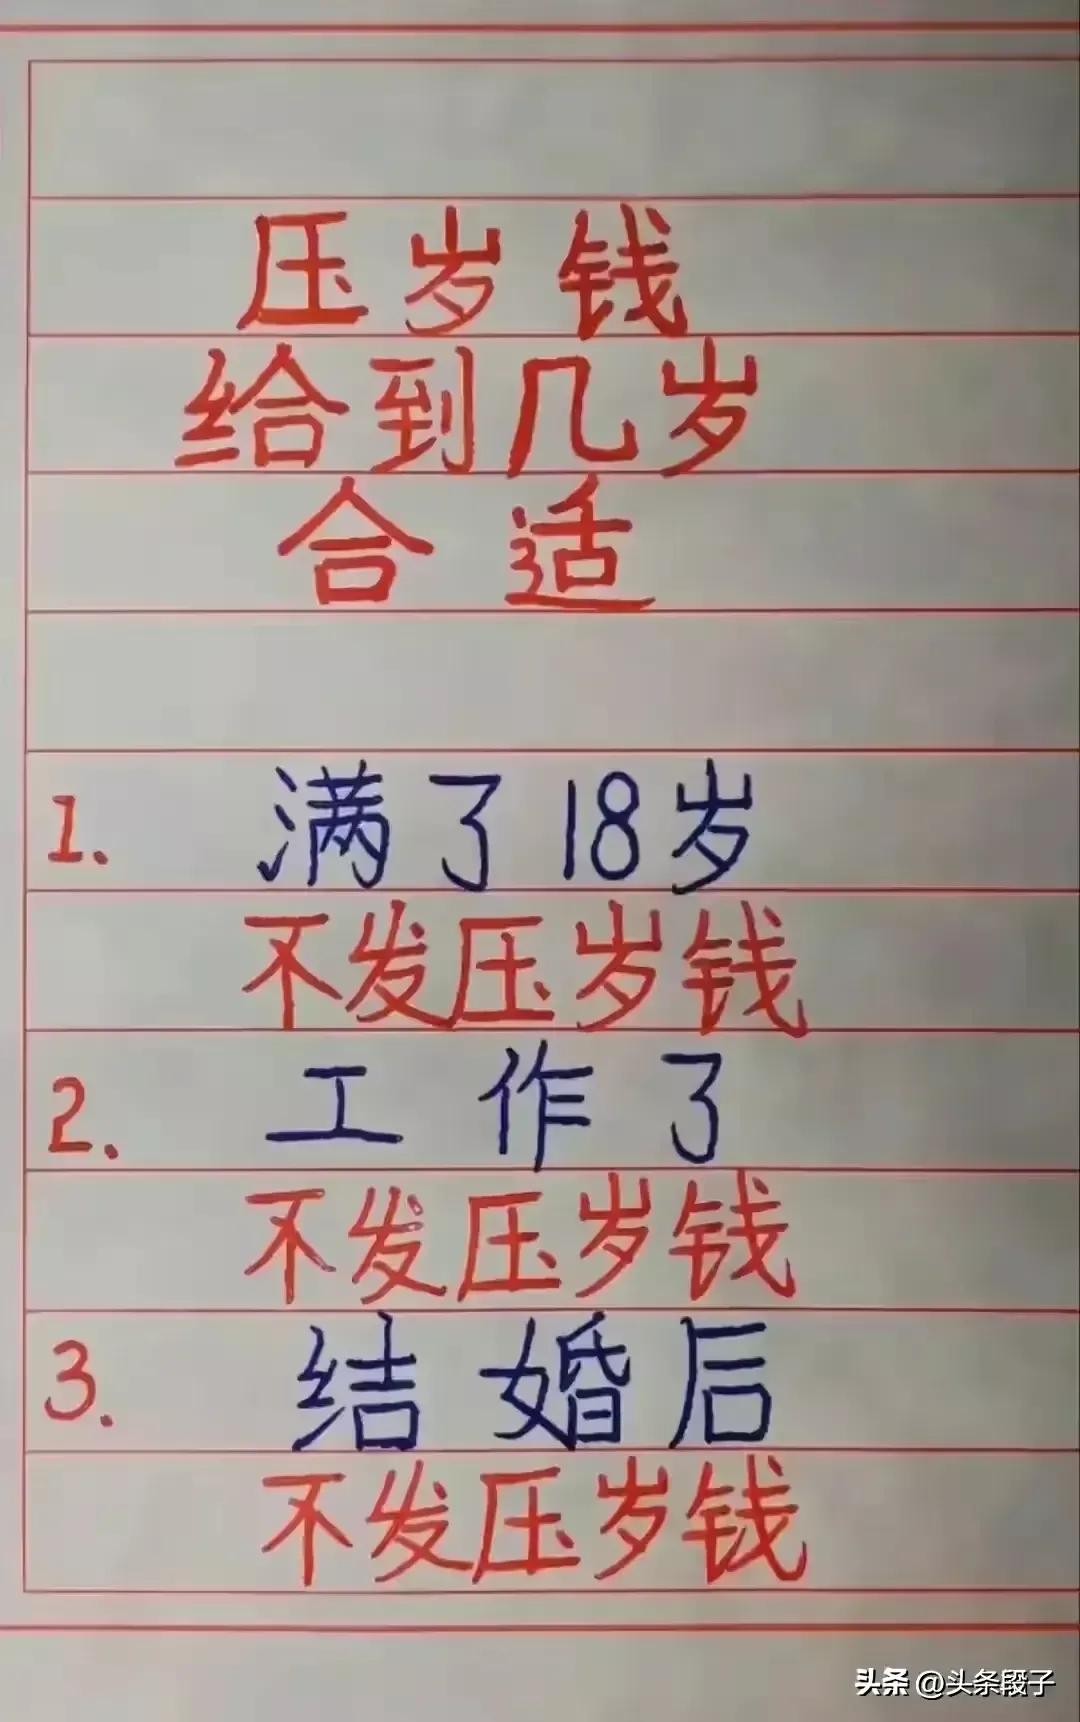 压岁钱
给到几岁
合适
1. 满了18岁
不发压岁钱
2. 工作了
不发压岁钱
3. 结婚后
不发压岁钱
头条 @头条段子